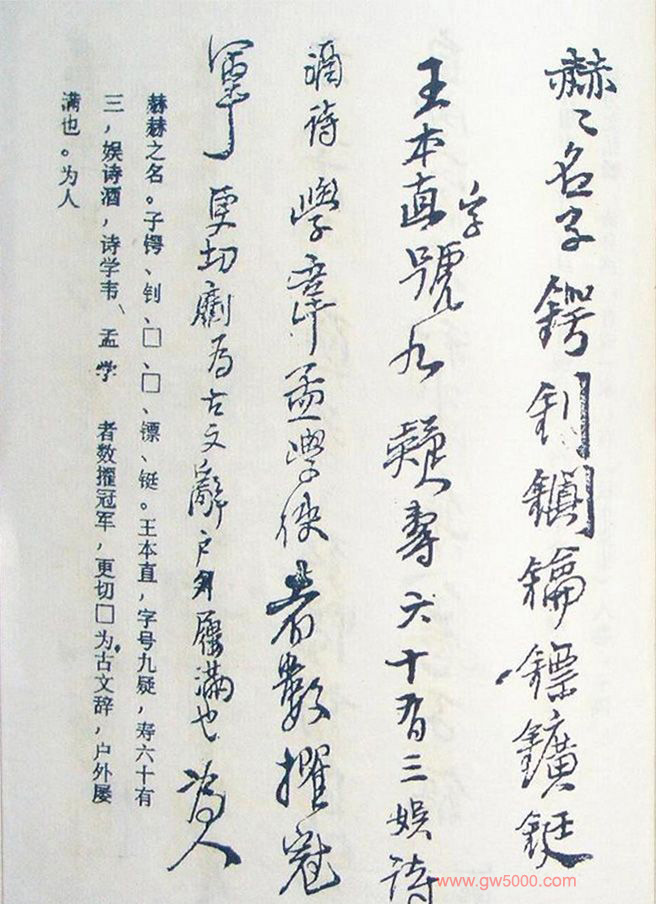 赫〻名子锷钊鎭鑰鏢鑛鋌
王本直字號九疑壽六十有三娱诗
酒诗學韋孟學使者數擢冠
軍更切劘為古文辭户外屨滿也為人
赫赫之名。子锷、钊、□、□、镖、铤。王本直，字号九疑，寿六十有
三，娱诗酒，诗学韦、孟学 者数擢冠军，更切□为古文辞，户外屡
满也。为人
www.gw5000.com